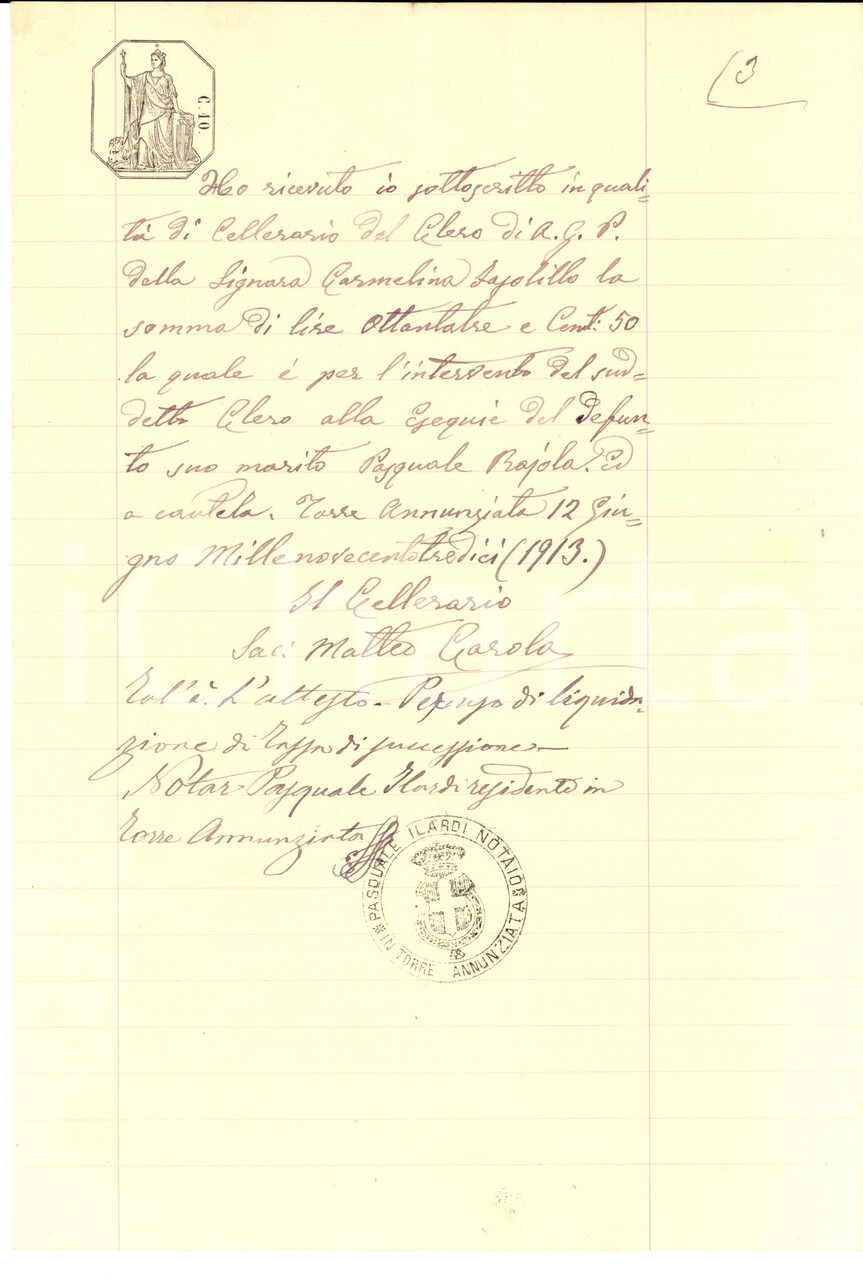 C. 10.
(3
Ho ricevuto io sottoscritto in quali-
tà di Cellerario del Clero di A. G. P.
della Signora Carmelina Iapolillo la
somma di lire Ottantatre e Cent: 50
la quale è per l'intervento del sud=
detto Clero alla Esequie del Defun=
to suo marito Pasquale Rajola. Ed
a cautela. Torre Annunziata 12 Giu=
gno Millenovecentotredici (1913.)
Il Cellerario
Sac: Matteo Carola
Tal'è. L'attesto. Per uso di liquida-
zione di tassa di successione—
Notar Pasquale Ilardi residente in
Torre Annunziata
PASQUALE ILARDI NOTAIO
IN TORRE ANNUNZIATA
iCharta